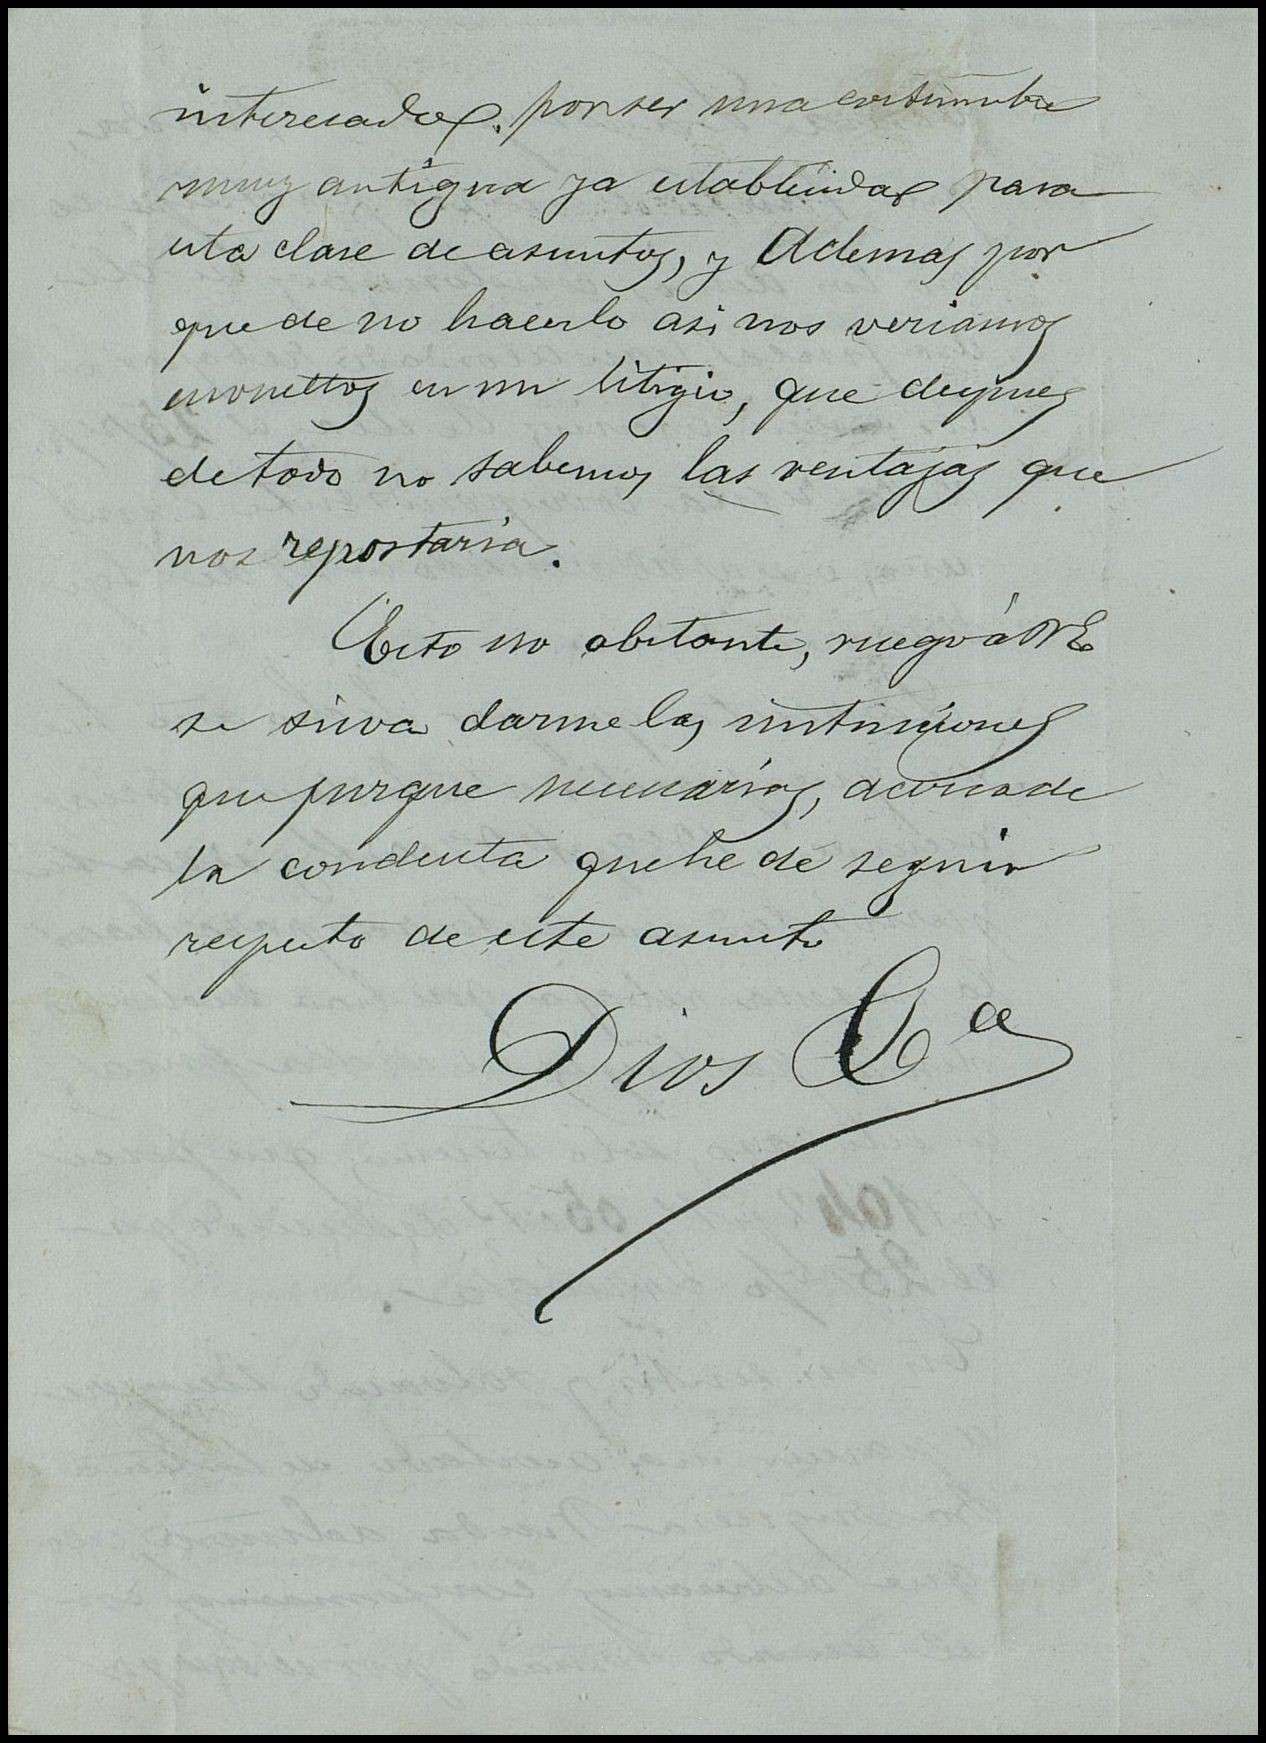 interesados. por ser una costumbre
muy antigua ya establecida para
esta clase de asuntos, y Ademas por
que de no hacerlo asi nos veriamos
envueltos en un litigio, que despues
de todo no sabemos las ventajas que
nos repostaria.
Esto no obstante, ruego á V.E.
se sirva darme las instruciones
que jusgue necesarias, acerca de
la conducta que he de seguir
respecto de este asunto
Dios G.a